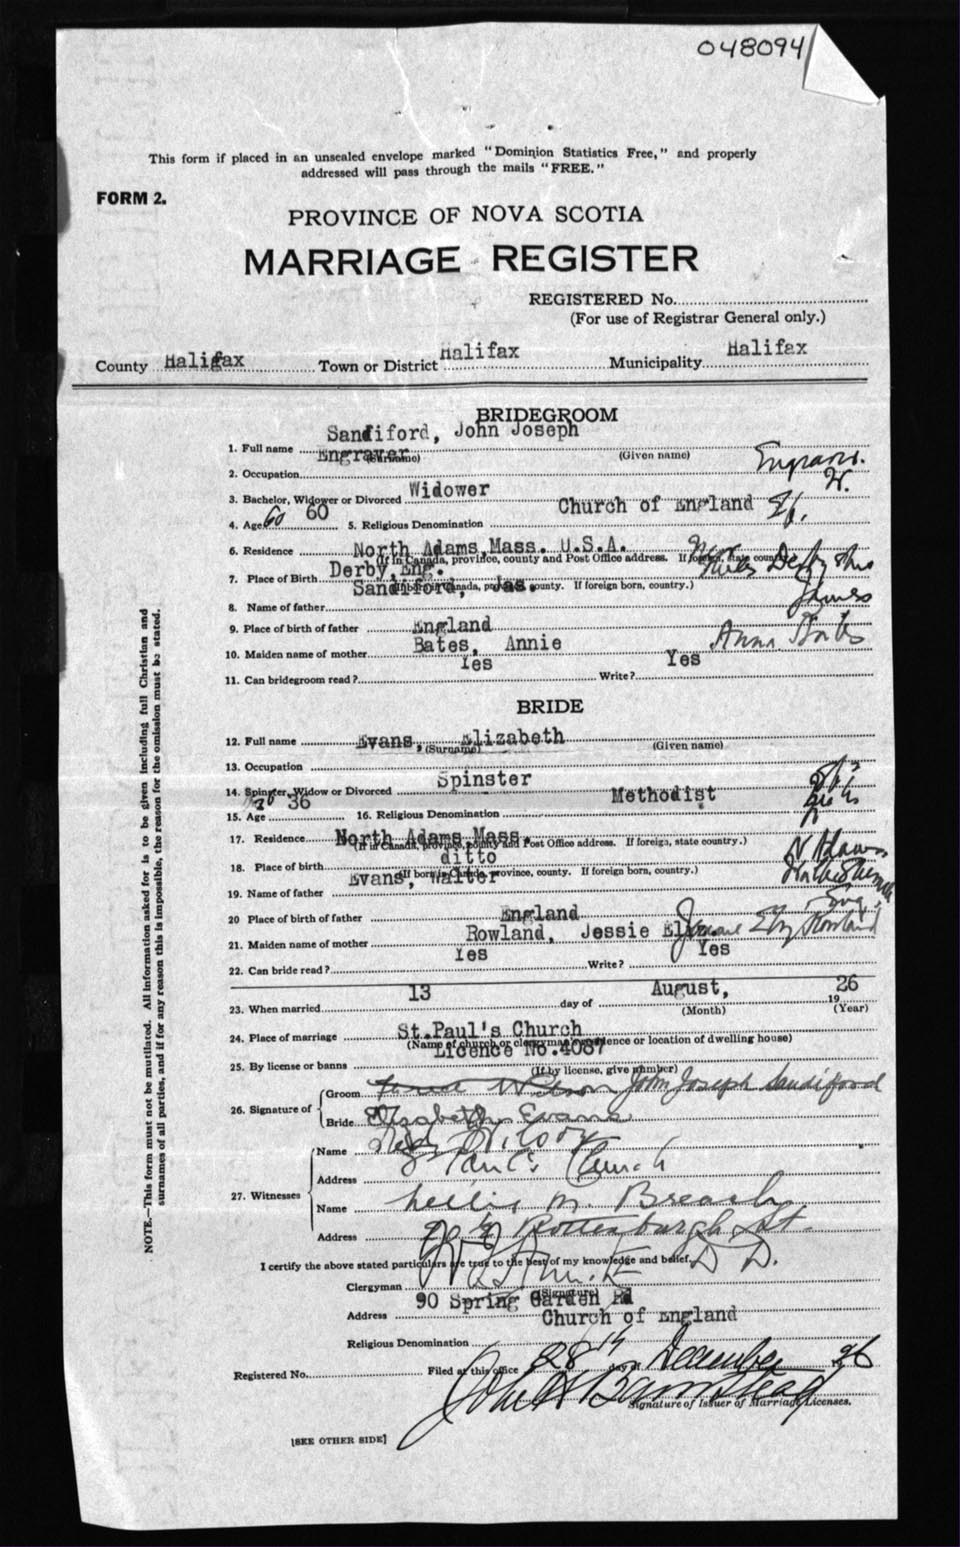 048094
This form if placed in an unsealed envelope marked "Dominion Statistics Free," and properly
addressed will pass through the mails "FREE."
FORM 2.
PROVINCE OF NOVA SCOTIA
MARRIAGE REGISTER
REGISTERED No.
(For use of Registrar General only.)
County Halifax Town or District Halifax Municipality Halifax
BRIDEGROOM
1. Full name Sandiford, John Joseph
(Surname) (Given name)
2. Occupation Engraver Engraver.
3. Bachelor, Widower or Divorced Widower W.
4. Age 60 60 5. Religious Denomination Church of England
6. Residence North Adams, Mass. U.S.A.
(If in Canada, province, county and Post Office address. If foreign, state country.)
7. Place of Birth Derby, Eng. Derbyshire
(If born in Canada, province, county. If foreign born, country.)
8. Name of father Sandiford, Jas. James
9. Place of birth of father England
10. Maiden name of mother Bates, Annie Anna Bates
11. Can bridegroom read? Yes Write? Yes
BRIDE
12. Full name Evans, Elizabeth
(Surname) (Given name)
13. Occupation
14. Spinster, Widow or Divorced Spinster
15. Age 36 16. Religious Denomination Methodist
17. Residence North Adams Mass.
(If in Canada, province, county and Post Office address. If foreign, state country.)
18. Place of birth ditto N Adams
(If born in Canada, province, county. If foreign born, country.)
19. Name of father Evans, Walter
20 Place of birth of father England Eng.
21. Maiden name of mother Rowland, Jessie Eliz Rowland
22. Can bride read? Yes Write? Yes
23. When married 13 day of August, 1926
(Month) (Year)
24. Place of marriage St.Paul's Church
(Name of church or clergyman's residence or location of dwelling house)
25. By license or banns Licence No.4087
(If by license, give number)
26. Signature of Groom John Joseph Sandiford
Bride Elizabeth Evans
27. Witnesses Name Wilson
Address St Paul's Church
Name Nellie M. Brearly
Address Rottenburgh St.
I certify the above stated particulars are true to the best of my knowledge and belief.
Clergyman D D.
(Signature)
Address 90 Spring Garden Rd
Religious Denomination Church of England
Registered No. Filed at this office 28th day of December 26
Signature of Issuer of Marriage Licenses.
[SEE OTHER SIDE]
NOTE.—This form must not be mutilated. All information asked for is to be given including full Christian and
surnames of all parties, and if for any reason this is impossible, the reason for the omission must be stated.